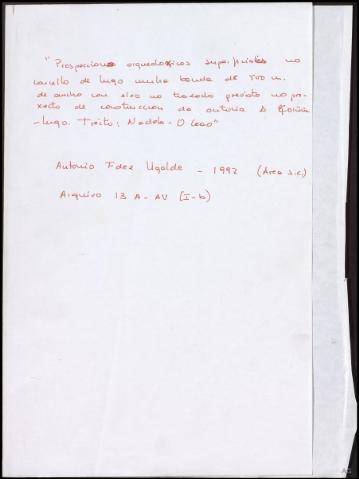 "Prospeccions arqueoloxicas superficiales no
concello de Lugo nunha banda de 500 m.
de ancho con eixo no trazado previsto no pro-
xecto de construccion da autovia
-Lugo. Treito: Nadela - O Ceao"
Antonio Fdez Ugalde - 1992 (Area s.c.)
Arquivo 13 A - AV (I-b)